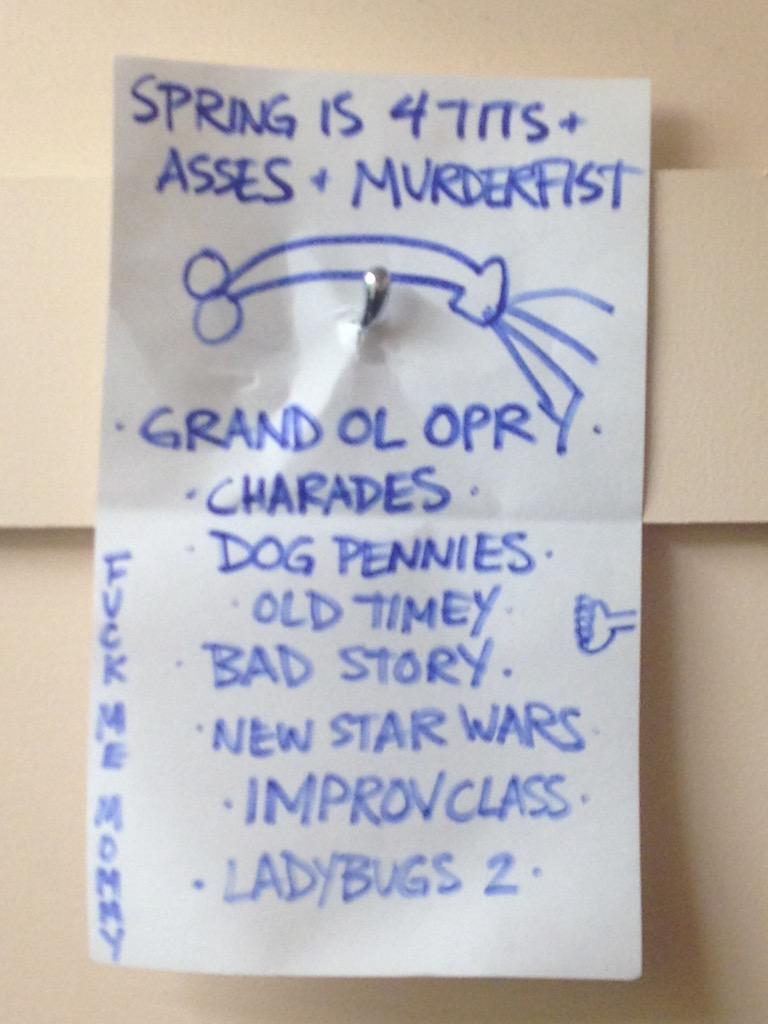 SPRING IS 4 TITS +
ASSES + MURDERFIST
· GRAND OL OPRY ·
· CHARADES ·
· DOG PENNIES ·
· OLD TIMEY ·
· BAD STORY ·
· NEW STAR WARS ·
· IMPROV CLASS ·
· LADYBUGS 2 ·
FUCK ME MOMMY